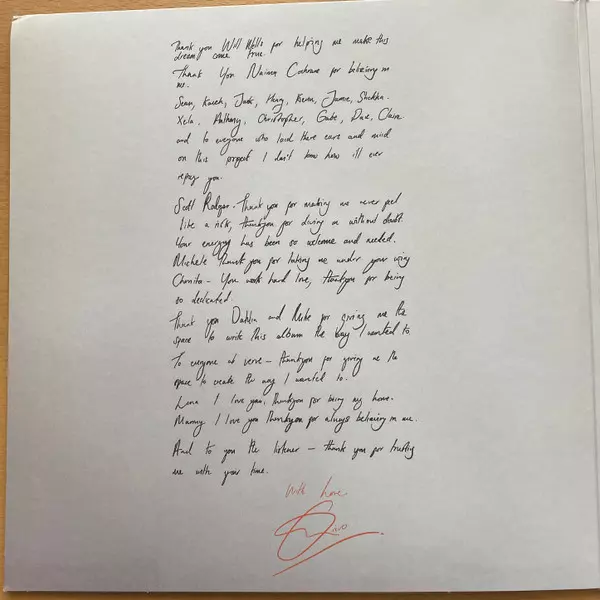 Thank you Will Wells for helping me make this
dream come true.
Thank You Naimah Cochrane for believing in
me.
Sean, Jack, Kieron, Jamie,
Xela, Anthony, Christopher, Gabe, Dave, Claire
and to everyone who lend there ears and mind
on this project I don't know how i'll ever
repay you.
Scott Rodger - Thank you for making me never feel
like a risk, thankyou for diving in without doubt.
Your energy has been so welcome and needed.
Michele thank you for taking me under your wing
You work hard love, thankyou for being
so dedicated.
Thank you Dahlia and Mike for giving me the
space to write this album the way I wanted to.
To everyone at verve - thankyou for giving me the
space to create the way I wanted to.
Lena I love you, thankyou for being my home.
Mummy I love you thankyou for always believing in me.
And to you the listener - thank you for trusting
me with your time.
With Love